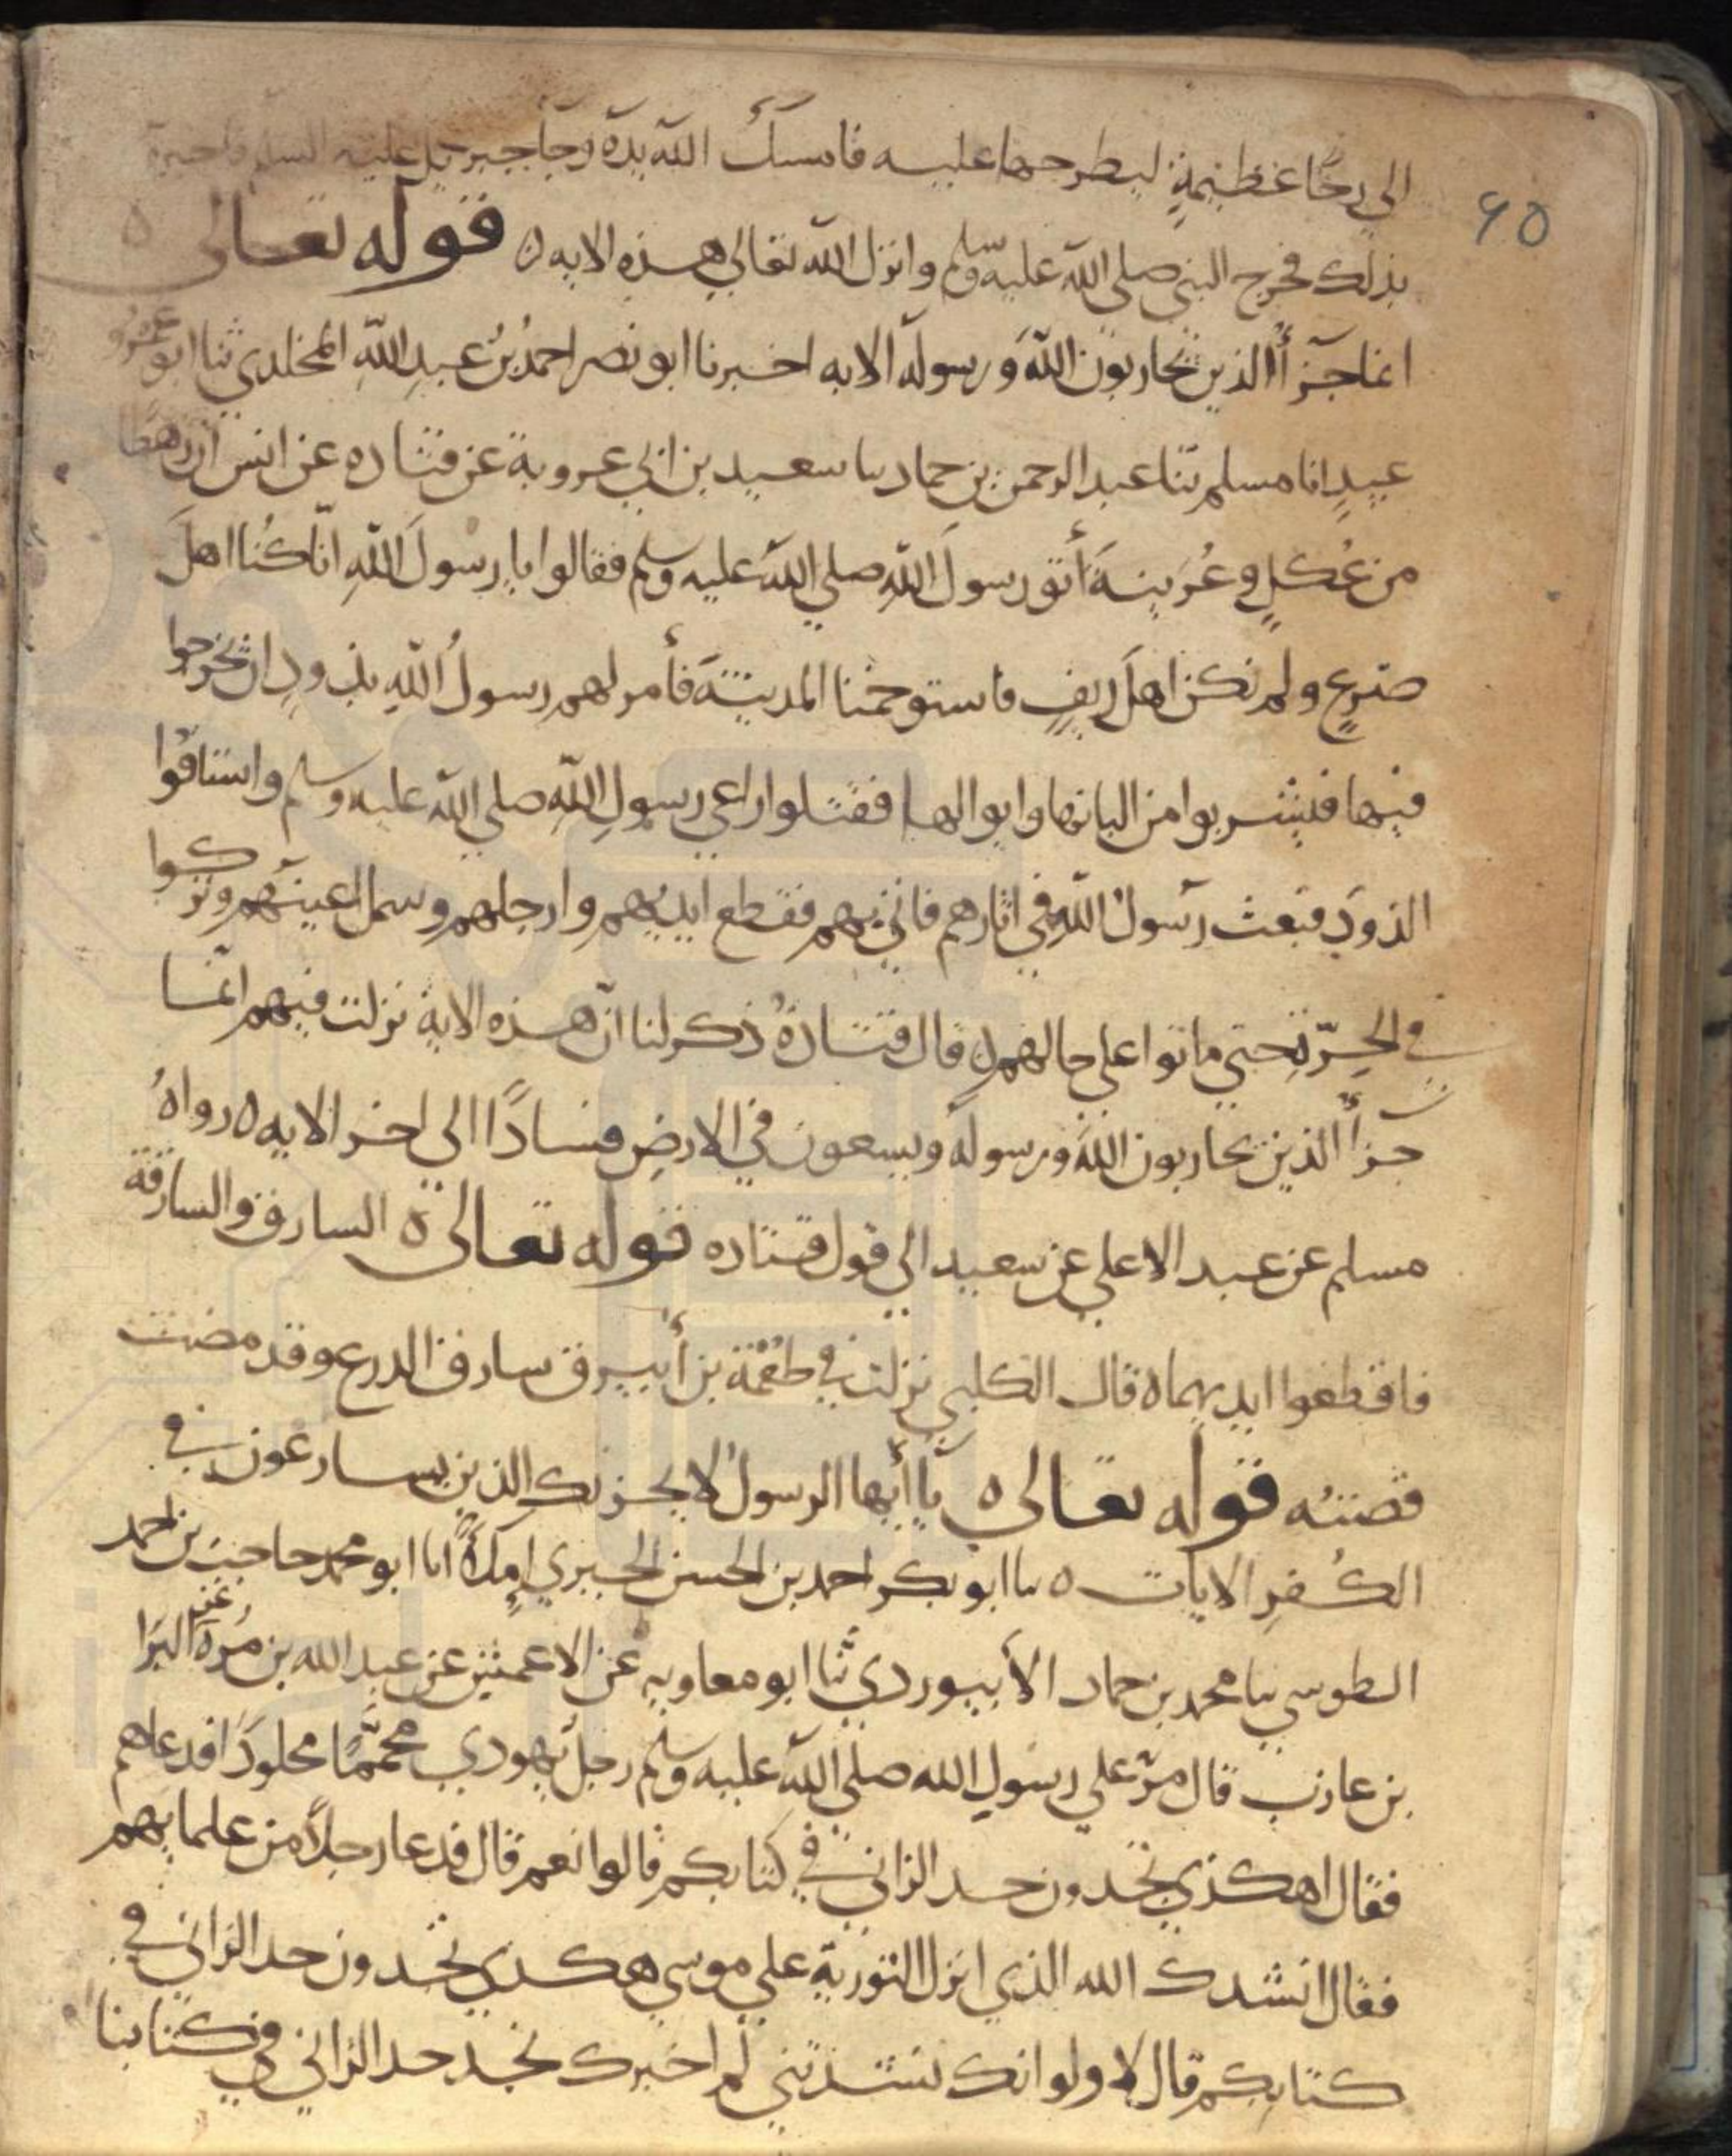 ٤٥
الي رحًا عظيمةٍ ليطرحها عليه فامسك الله يده وجا جبريل عليه السلم فاخبره
بذلك فخرج النبي صلي الله عليه وسلم وانزل الله تعالي هذه الايه ٥ قوله تعالى ٥
انما جزأ الذين يحاربون اللهَ ورسوله الايه اخبرنا ابو نصر احمدُ بنُ عبيدِ اللهِ المخلدي ثنا ابو عمرو
عبيدٍ انا مسلم ثنا عبد الرحمن بن حماد ثنا سعيد بن ابي عروبة عن قتاده عن انس ان رهطًا
من عُكلٍ و عُرَينةَ أتو رسولَ اللهِ صلي الله عليه وسلم فقالوا يا رسولَ اللهِ انّا كُنا اهلَ
ضرعٍ ولم نكن اهلَ ريفٍ فاستوخمنا المدينةَ فأمر لهم رسولُ اللهِ بذودٍ ان يخرجوا
فيها فليشربوا من البانها وابوالها فقتلوا راعي رسولِ اللهِ صلي الله عليه وسلم واستاقُوا
الذودَ فبعث رسولُ اللهِ في اثارهم فاتي بهم فقطع ايديهم وارجلهم وسمل اعينهم وتركوا
في الحرّةِ حتي ماتوا علي حالهم ٥ قال قتادةُ ذكر لنا انّ هذه الاية نزلت فيهم انّما
جزأُ الذين يحاربون اللهَ ورسوله ويسعون في الارضِ فسادًا الي اخر الايه ٥ رواهُ
مسلم عن عبد الاعلي عن سعيد الي قول قتاده قوله تعالى ٥ السارق والسارقة
فاقطعوا ايديهما ٥ قال الكلبي نزلت في طعمة بن أبيرق سارق الدرع وقد مضت
قصته قوله تعالى ٥ يا أيها الرسولُ لا يحزنك الذين يسارعون في
الكُفرِ الايات ٥ ثنا ابو بكر احمد بن الحسن الحيري إملأً انا ابو محمد حاجب بن احمد
الطوسي ثنا محمد بن حماد الأبيوردي ثنا ابو معاويه عن الاعمش عن عبد الله بن مُرة عن البرا
بن عازب قال مرّ علي رسولِ الله صلي الله عليه وسلم رجل يهودي محممًا مجلودًا فدعاهم
فقال اهكذي تجدون حد الزاني في كتابكم قالوا نعم قال فدعا رجلاً من علمايهم
فقال انشدك الله الذي انزل التورية علي موسي هكذي تجدون حد الزاني في
كتابكم قال لا ولو انك نشدتني لم اخبرك نجد حد الزاني في كتابنا